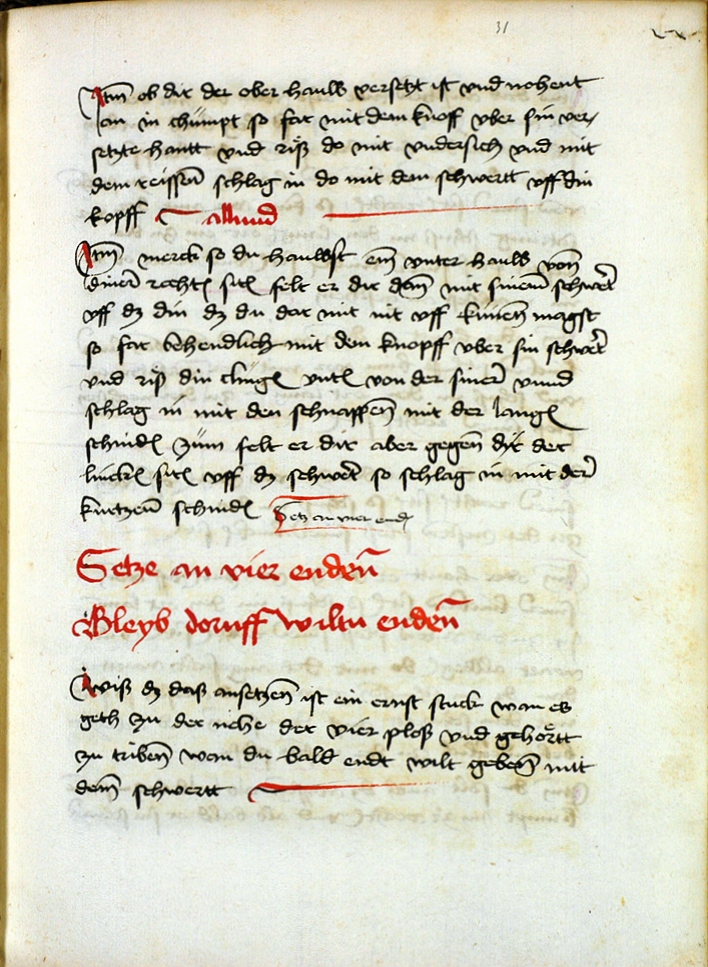 31
Itm̄ ob dir der ober hauw versetzt ist vnd nohent
an in chümpt so far mit dem knoff vber sin ver,
setzte hantt vnd riß do mit vndersich vnd mit
dem reissen̄ schlag in do mit dem schwertt vff din
kopff allmd
Itm̄ merck so du hauwst ein̄ vnter hauw von̄
diner rechtē sitē felt er dir dan̄ mit sinem schwert
vff dz din dz du dar mit nit vff kumen̄ magst
so far behendlich mit dem knopff vber sin schwert
vnd riß din clingē vntē von der siner vnnd
schlag in mit den schnappen̄ mit der langē
schnidē zum felt er dir aber gegen̄ dir der
linckē sitē vff dz schwert so schlag in mit der
kurtzen̄ schnidē Setz an vier endē
Setze an vier enden̄
Bleyb doruff wiltu enden̄
Wiß dz daß ansetzen̄ ist ein ernst stuck wan es
geth zu der nehe der vier ploß vnd gehörtt
zu triben̄ wan du bald endt wilt geben̄ mit
dem̄ schwertt